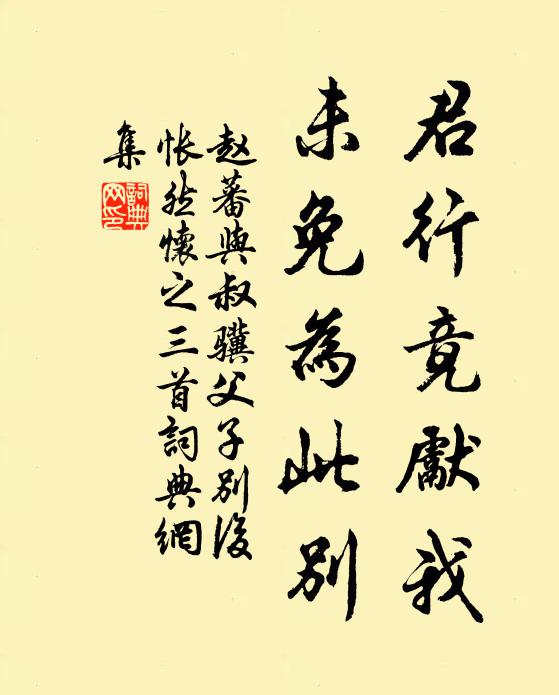 君行竟獻我
未免為此別
赵蕃與叔驥父子別後
怅然懷之三首詞典網
集
詞典网印